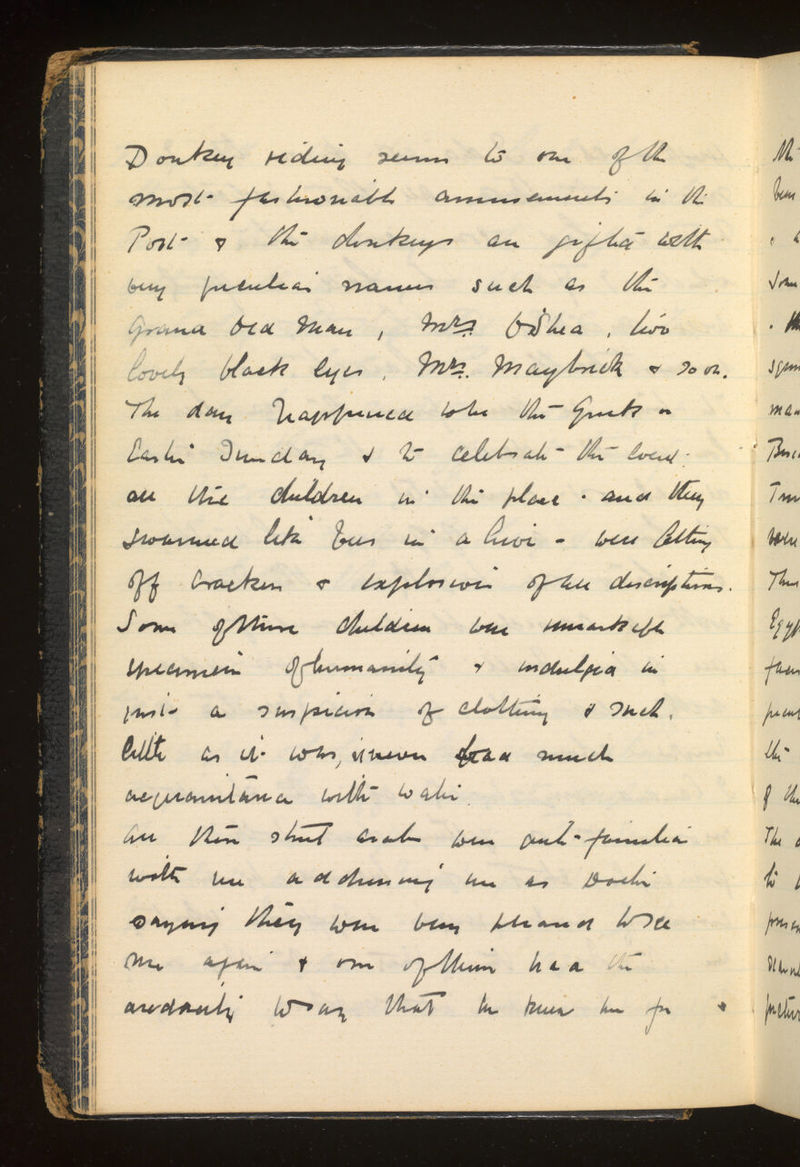 Donkey riding seems to one of the
most fashionable amusements in the
Port & the donkeys are gifted with
very peculiar names such as the
Grand Old Man, Mrs. O'Shea, two
lovely black eyes, Mrs. Maybrick & so on.
The day happened to be the Greek
Easter Sunday & to celebrate the event
all the children in the place - and they
swarmed like bees in a hive - were letting
off crackers & explosives of all descriptions.
Some of these children were remarkable
specimens of humanity & indulged in
just a suspicion of clothing & such
little as it was, never had much
acquaintance with water.
All these street arabs were quite familiar
with me addressing me as Doctor
saying they were very pleased to see
me again & one of them had the
audacity to say that he knew me for
the
been
Some
The